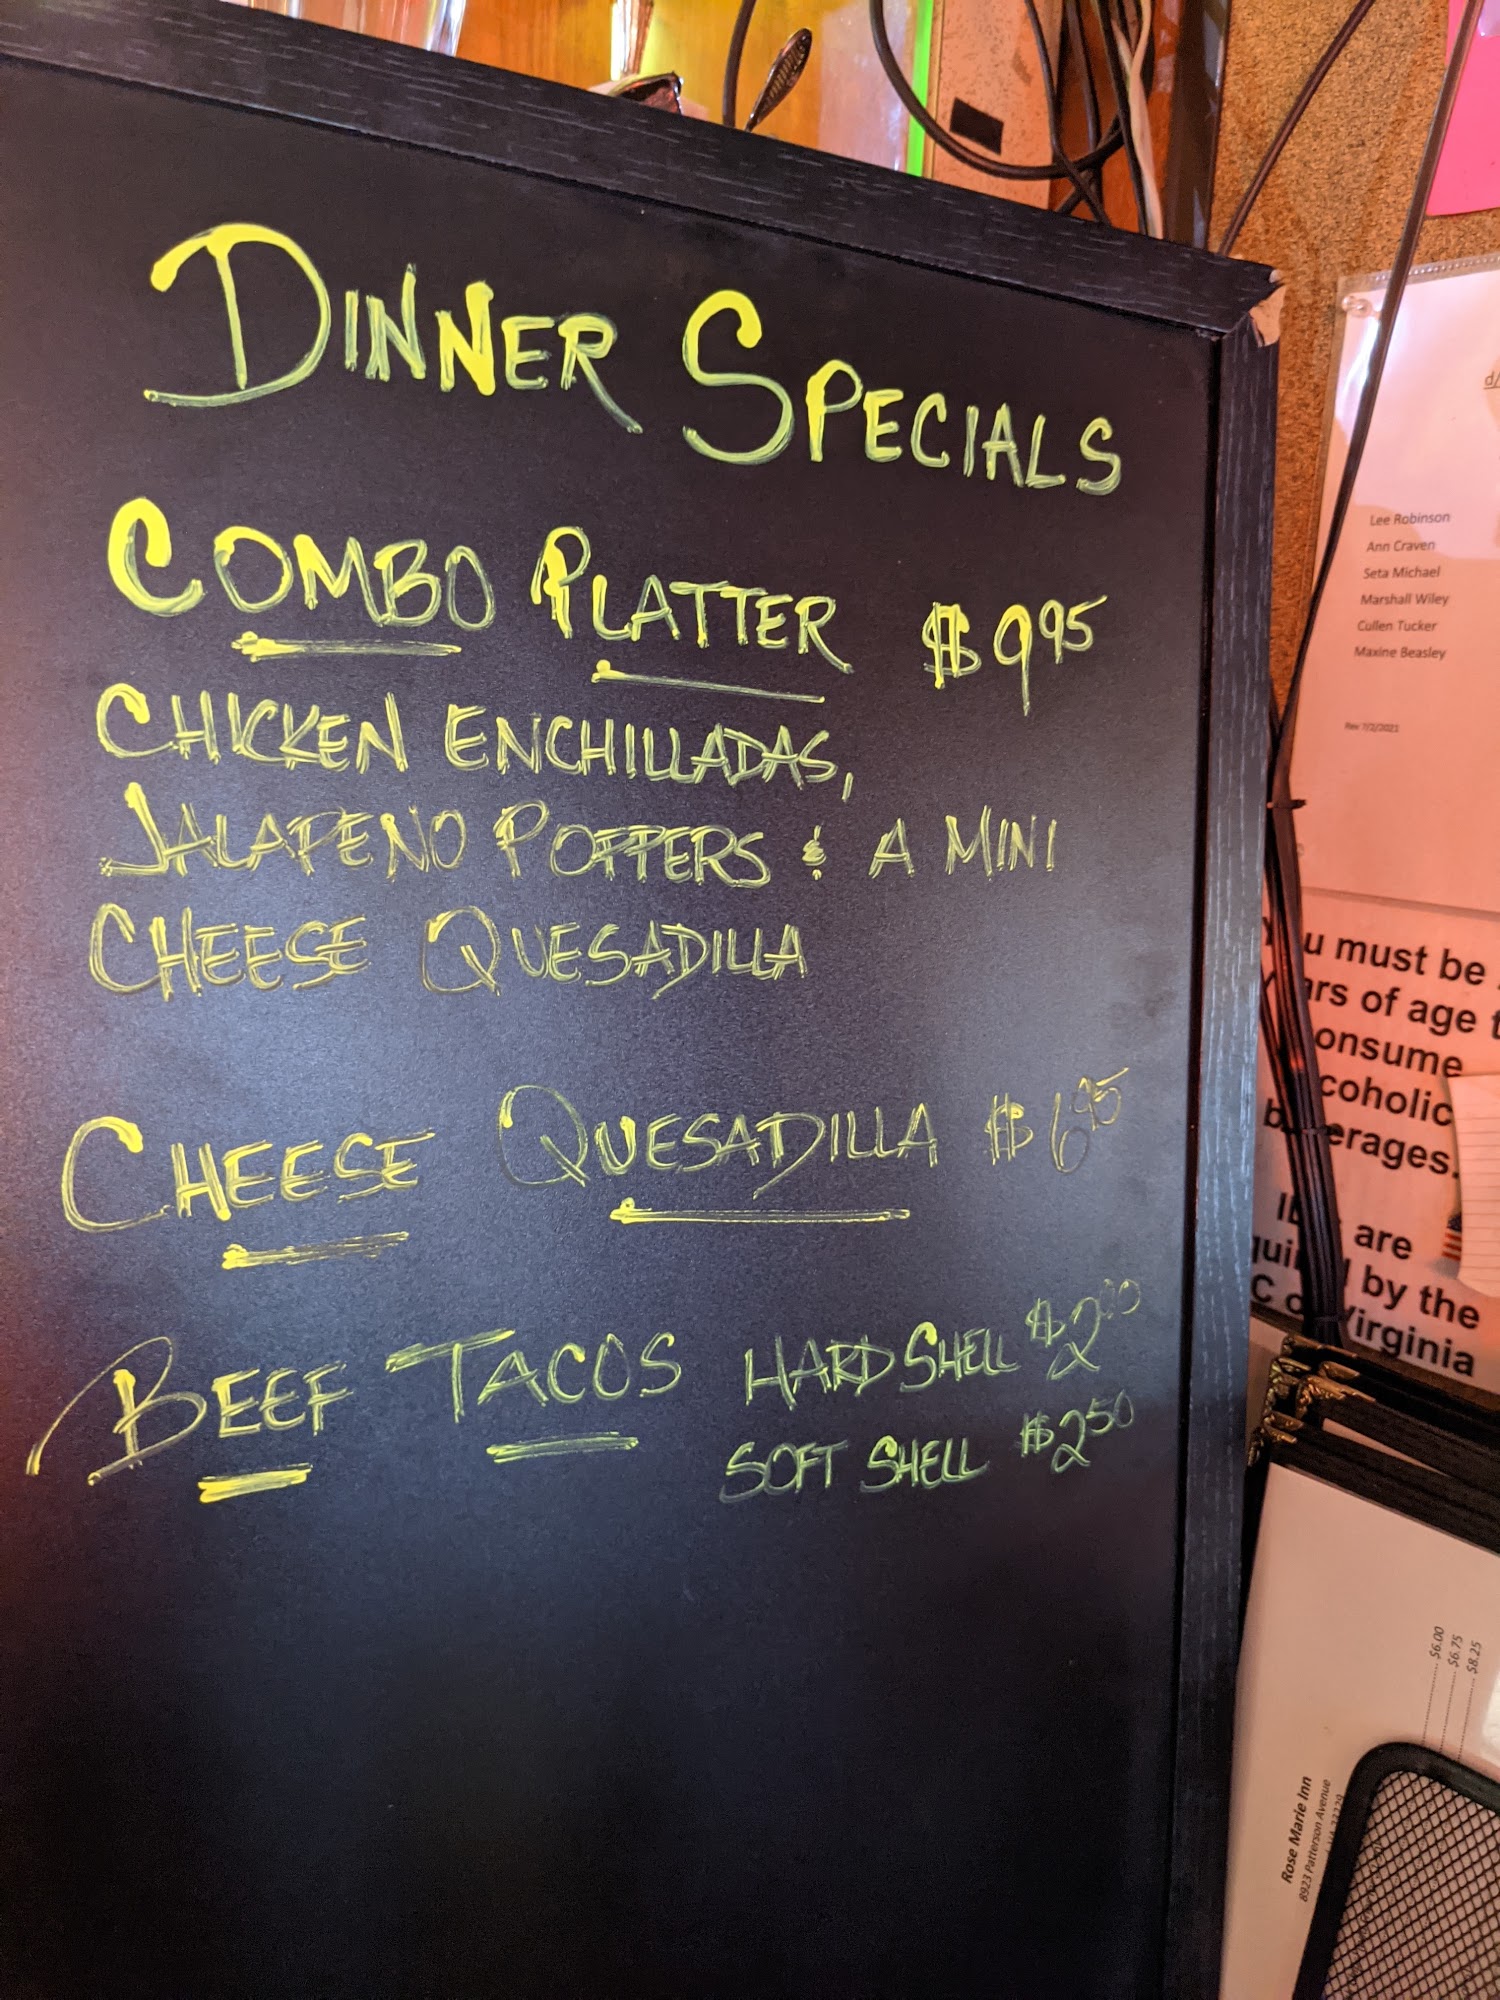 DINNER SPECIALS
COMBO PLATTER $9.95
CHICKEN ENCHILLADAS,
JALAPENO POPPERS & A MINI
CHEESE QUESADILLA
CHEESE QUESADILLA $6.95
BEEF TACOS HARD SHELL $2.00
SOFT SHELL $2.50
Lee Robinson
Ann Craven
Seta Michael
Marshall Wiley
Cullen Tucker
Maxine Beasley
Rev 7/2/2021
u must be
ars of age t
onsume
coholic
b erages.
are
by the
C o Virginia
$6.00
$6.75
$8.25
Rose Marie Inn
8923 Patterson Avenue